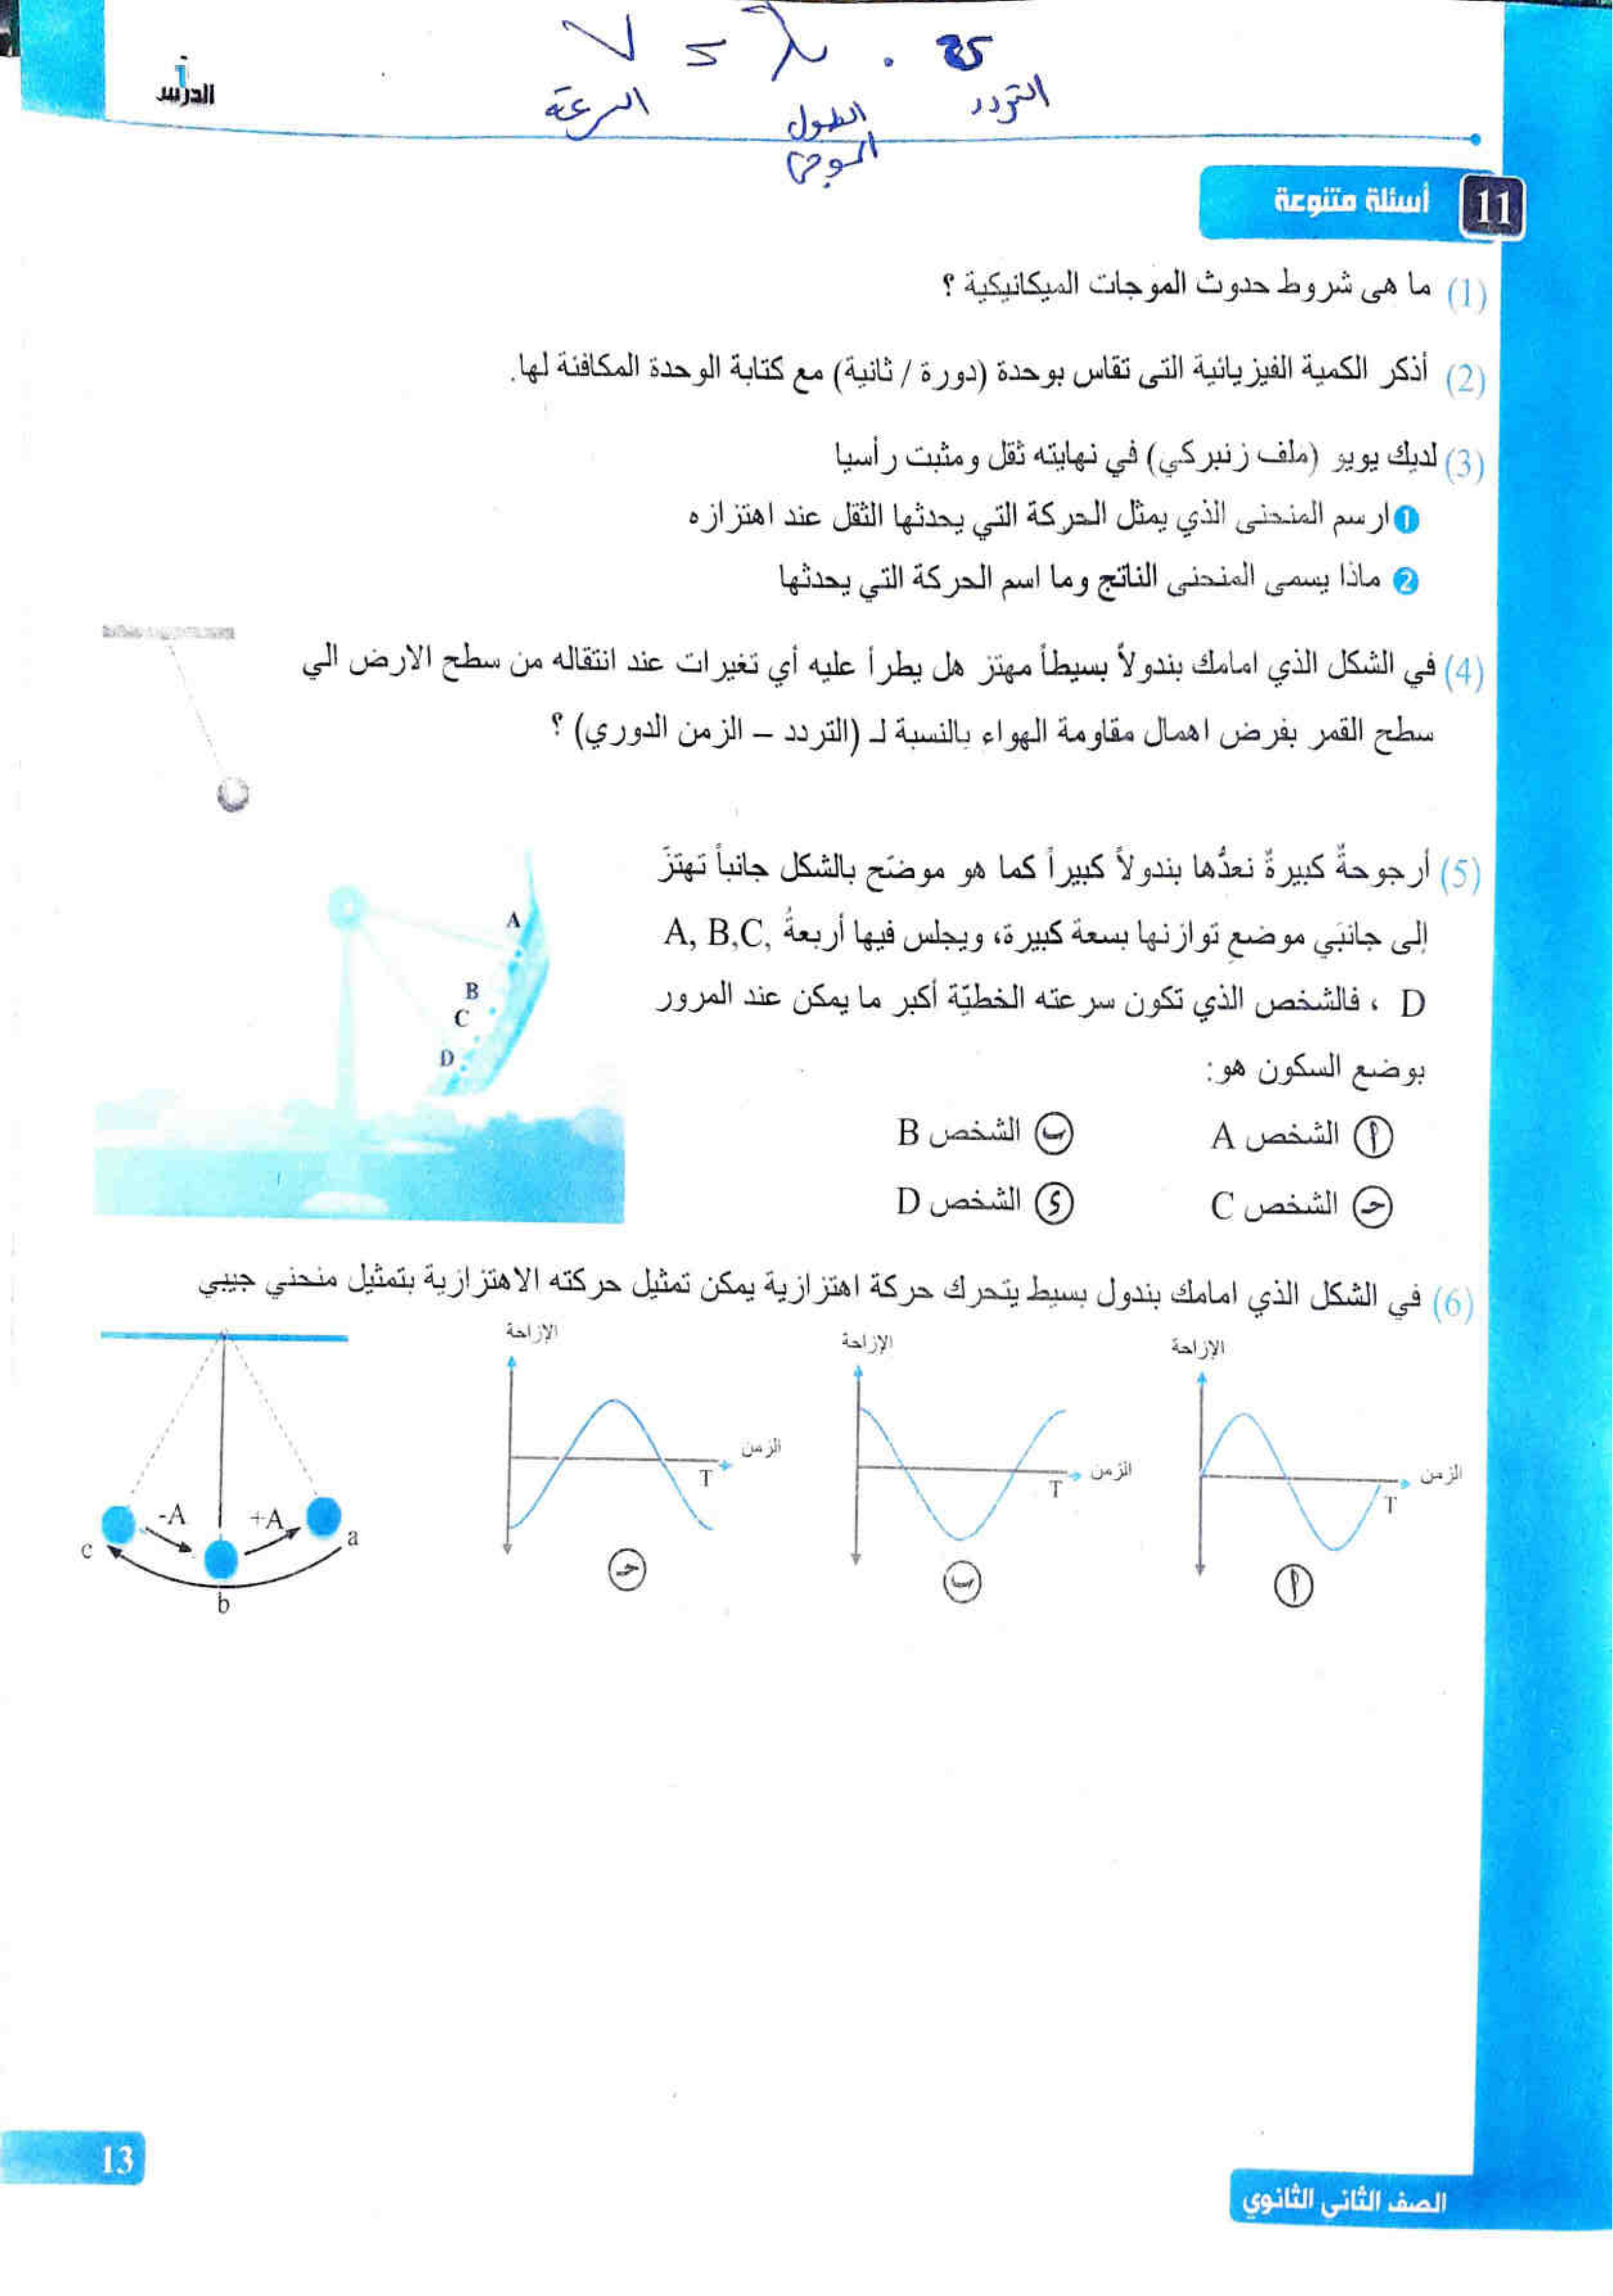 V = λ . υ
السرعة
الطول
الموجى
التردد
الدرس
1
11 أسئلة متنوعة
(1) ما هى شروط حدوث الموجات الميكانيكية ؟
(2) أذكر الكمية الفيزيائية التى تقاس بوحدة (دورة / ثانية) مع كتابة الوحدة المكافئة لها.
(3) لديك يويو (ملف زنبركي) في نهايته ثقل ومثبت رأسيا
1 ارسم المنحنى الذي يمثل الحركة التي يحدثها الثقل عند اهتزازه
2 ماذا يسمى المنحنى الناتج وما اسم الحركة التي يحدثها
(4) في الشكل الذي امامك بندولاً بسيطاً مهتز هل يطرأ عليه أي تغيرات عند انتقاله من سطح الارض الي
سطح القمر بفرض اهمال مقاومة الهواء بالنسبة لـ (التردد – الزمن الدوري) ؟
(5) أرجوحةٌ كبيرةٌ نعدُّها بندولاً كبيراً كما هو موضّح بالشكل جانباً تهتزّ
إلى جانبَي موضعِ توازنها بسعة كبيرة، ويجلس فيها أربعةُ A, B,C,
D ، فالشخص الذي تكون سرعته الخطيّة أكبر ما يمكن عند المرور
بوضع السكون هو:
A
B
C
D
أ الشخص A ب الشخص B
حـ الشخص C د الشخص D
(6) في الشكل الذي امامك بندول بسيط يتحرك حركة اهتزازية يمكن تمثيل حركته الاهتزازية بتمثيل منحني جيبي
الإزاحة
الزمن
T
أ
الإزاحة
الزمن
T
ب
الإزاحة
الزمن
T
حـ
-A +A
c a
b
13
الصف الثانى الثانوي